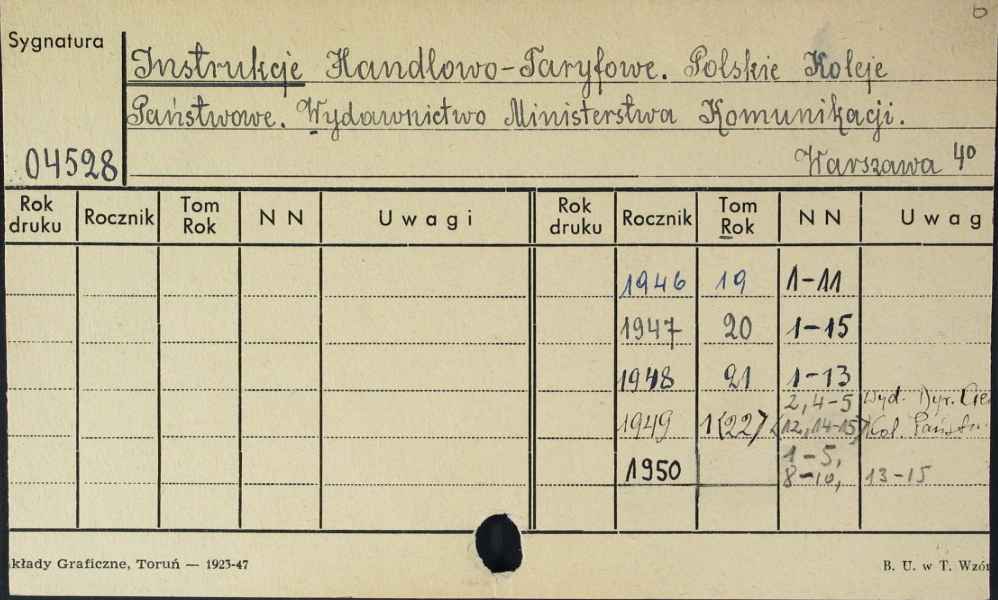 6
Sygnatura
Instrukcje Handlowo-Taryfowe. Polskie Koleje
Państwowe. Wydawnictwo Ministerstwa Komunikacji.
04528 Warszawa 40
Rok druku Rocznik Tom Rok N N Uwagi Rok druku Rocznik Tom Rok N N Uwag
1946 19 1-11
1947 20 1-15
1948 21 1-13
1949 1(22) 2, 4-5 (12, 14-15) Wyd. Dyr. Kol. Państw.
1950 1-5, 8-10, 13-15
kłady Graficzne, Toruń — 1923-47 B. U. w T. Wzór